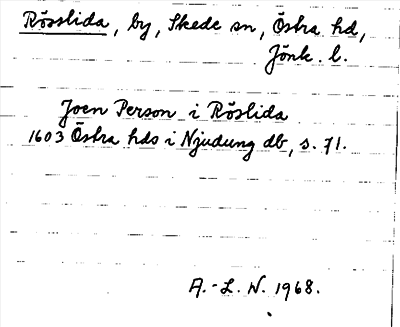 Rösslida, by, Skede sn, Östra hd,
Jönk. l.
Joen Person i Röslida
1603 Östra hds i Njudung db, s. 71.
A.-L. N. 1968.